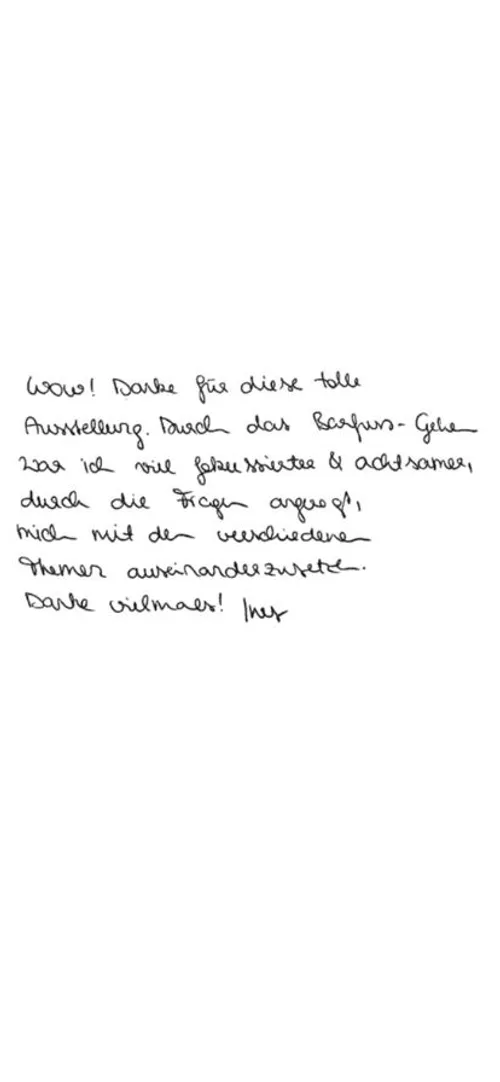 Wow! Danke für diese tolle
Ausstellung. Durch das Barfuss-Gehen
war ich viel fokussierter & achtsamer,
durch die Fragen angeregt,
mich mit den verschiedenen
Themen auseinanderzusetzen.
Danke vielmals! Ines